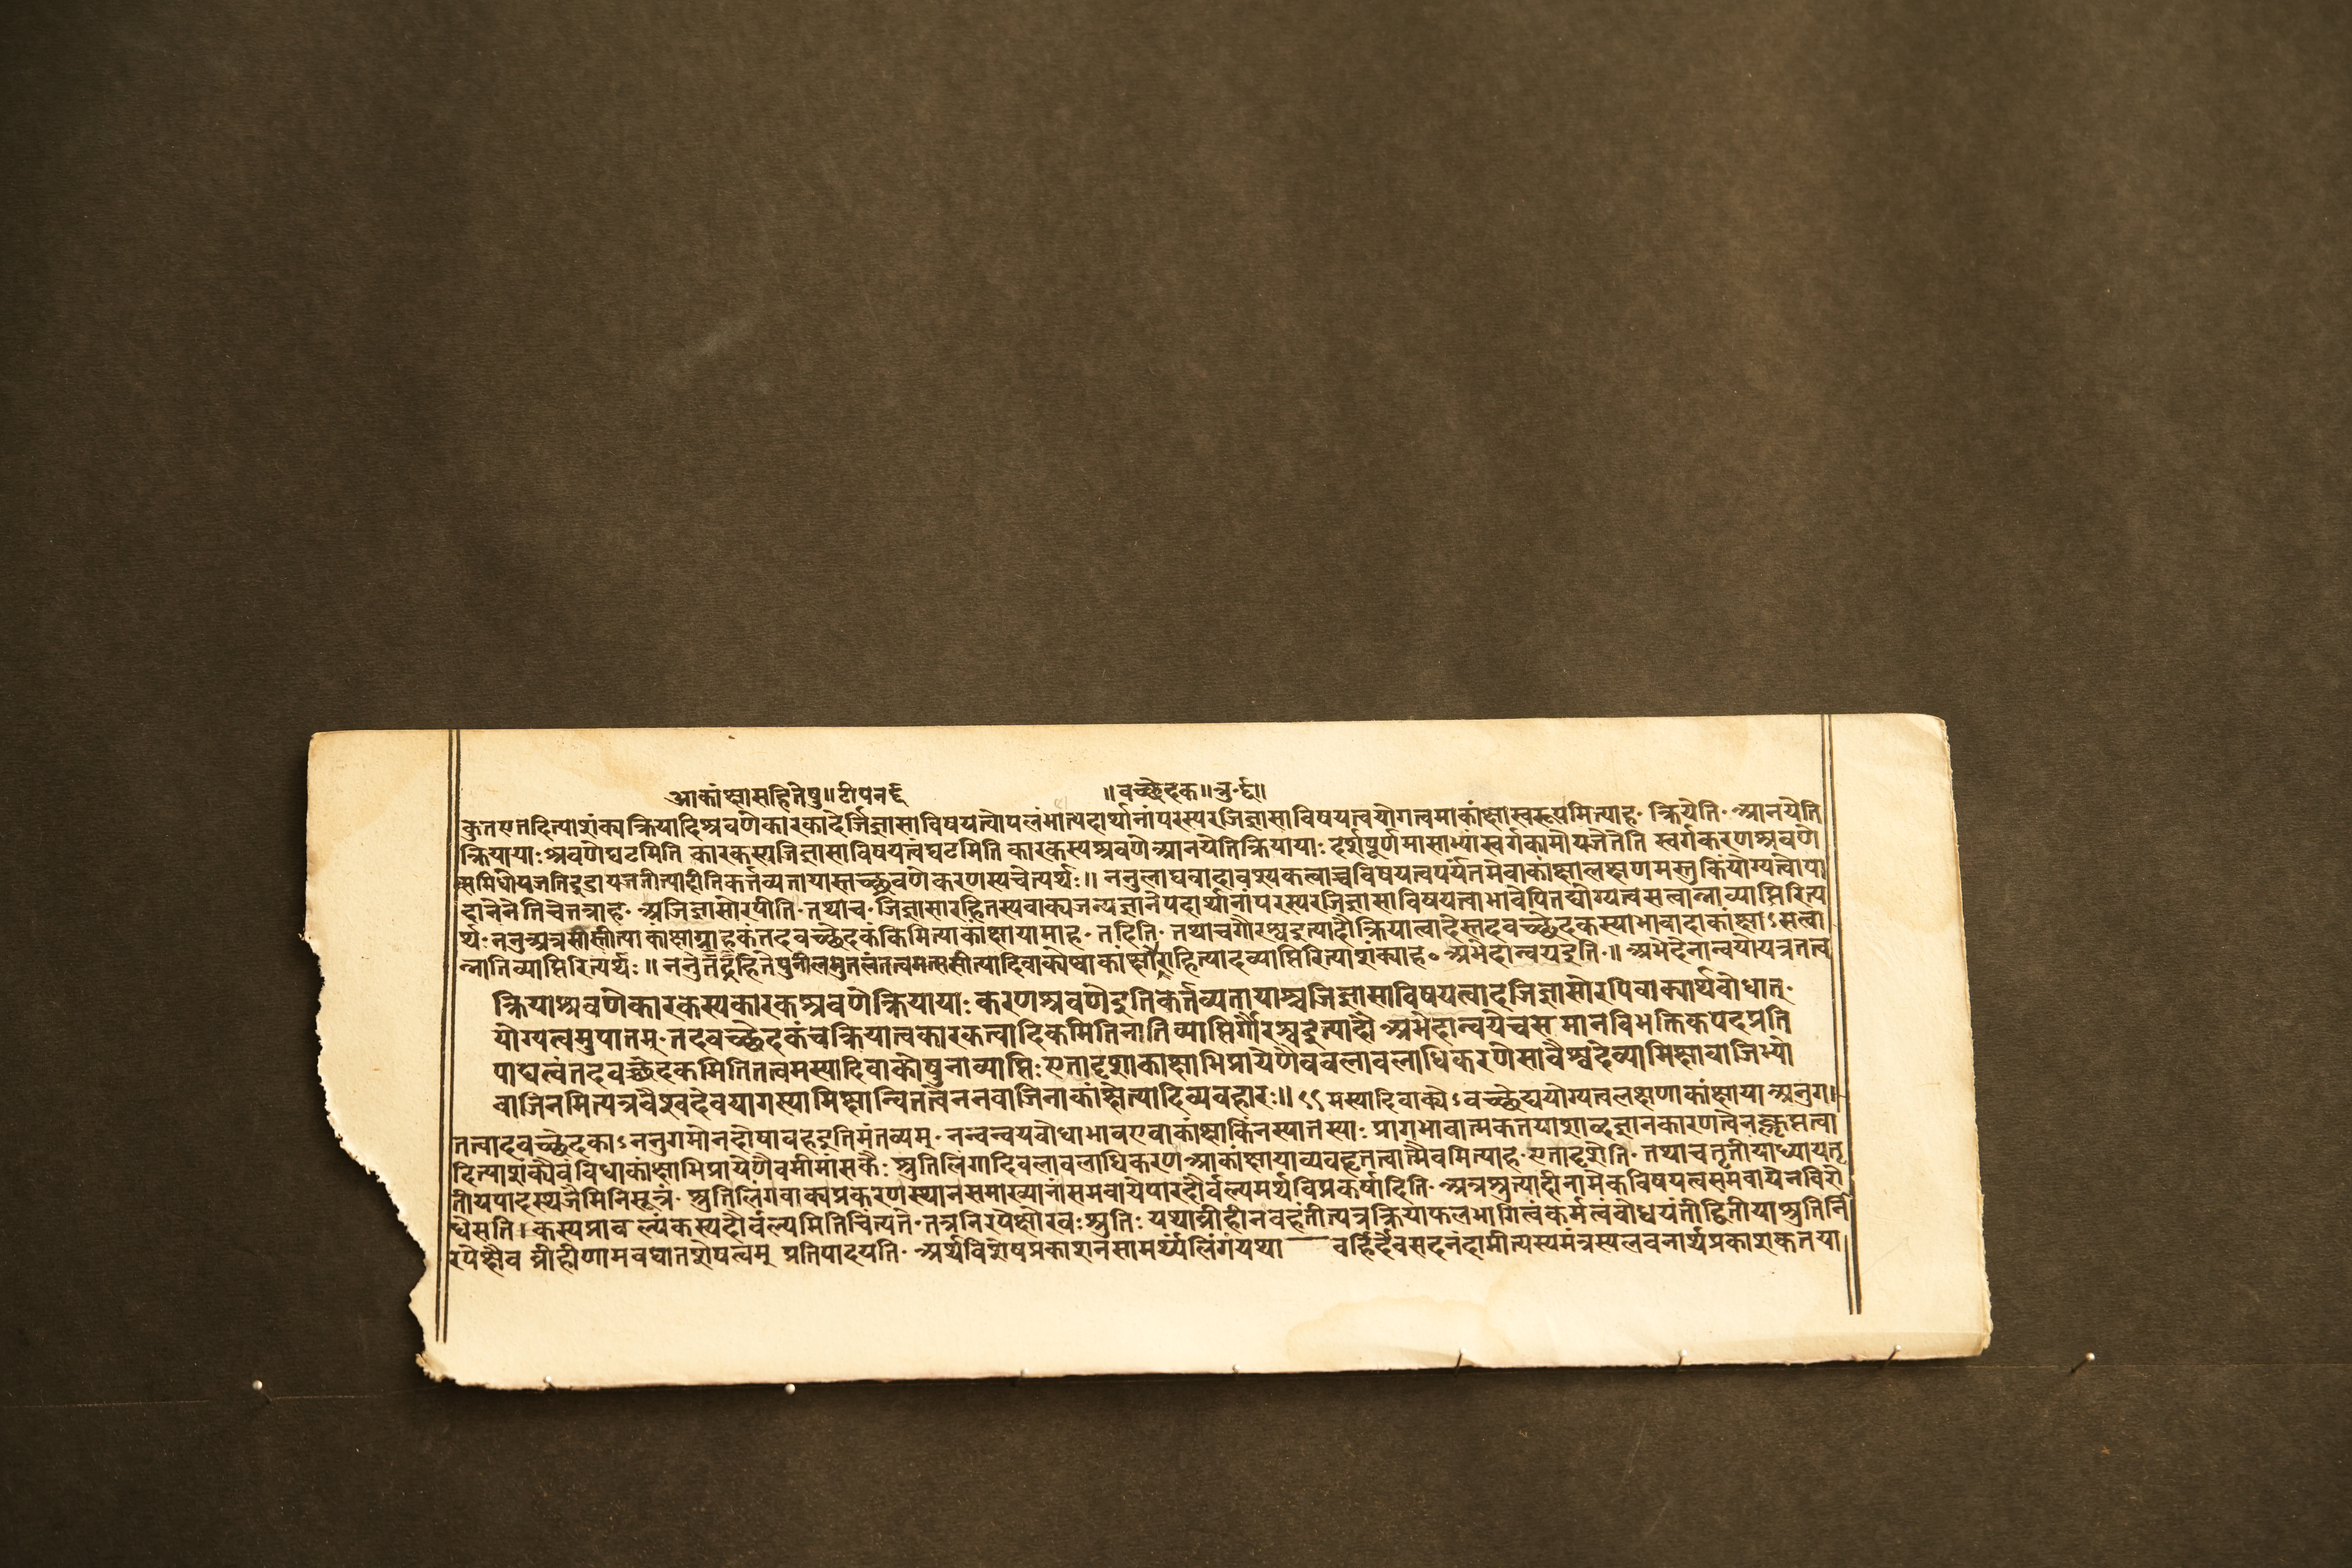 आकांक्षासहितेषु॥टीपनर्द्द ॥वच्छेदक॥नु॰र्द्द॥
कुतएतदित्याशंक्यक्रियादिश्रवणेकारकादेर्जिज्ञासाविषयत्वोपलंभात्पदार्थानांपरस्परजिज्ञासाविषयत्वयोगत्वमाकांक्षास्वरूपमित्याह॰ क्रियेति॰ आनयेति
क्रियायाःश्रवणेघटमिति कारकस्यजिज्ञासाविषयत्वंघटमिति कारकस्यश्रवणेआनयेतिक्रियायाः दर्शपूर्णमासाभ्यांस्वर्गकामोयजेतेति स्वर्गकरणश्रवणे
समिधोयजतिइडायजतीत्यादीतिकर्त्तव्यतायास्तच्छ्रवणेकरणस्यचेत्यर्थः॥ ननुलाघवादावश्यकत्वाच्चविषयत्वपर्यंतमेवाकांक्षालक्षणमस्तुकिंयोग्यत्वोपा
दानेनेतिचेत्तत्राह॰ अजिज्ञासोरपीति॰तथाच॰जिज्ञासारहितस्यवाक्यजन्यज्ञानेपदार्थानांपरस्परजिज्ञासाविषयत्वाभावेपितद्योग्यत्वसत्वान्नाव्याप्तिरित्य
र्थः ननुअत्रसासीत्याकांक्षाग्राहकंतदवच्छेदकंकिमित्याकांक्षायामाह॰ तदिति॰ तथाचगौरश्वइत्यादौक्रियात्वादेस्तदवच्छेदकस्याभावादाकांक्षाऽसत्वा
न्नातिव्याप्तिरित्यर्थः॥ ननु नीलमुत्पलंतत्वमत्ससीत्यादिवाक्येष्वाकांक्षाराहित्यादव्याप्तिरित्याशंक्याह॰ अभेदान्वयइति॰॥ अभेदेनान्वयोयत्रतत्व
क्रियाश्रवणेकारकस्यकारकश्रवणेक्रियायाः करणश्रवणेइतिकर्त्तव्यतायाश्चजिज्ञासाविषयत्वादजिज्ञासोरपिवाक्यार्थबोधात्॰
योग्यत्वमुपात्तम्॰तदवच्छेदकंचक्रियात्वकारकत्वादिकमितिनातिव्याप्तिर्गौरश्वइत्यादौ अभेदान्वयेचसमानविभक्तिकपदप्रति
पाद्यत्वंतदवच्छेदकमितितत्वमस्यादिवाक्येषुनाव्याप्तिः एतादृशाकांक्षाभिप्रायेणैवबलाबलाधिकरणेसावैश्वदेव्यामिक्षावाजिभ्यो
वाजिनमित्यत्रवैश्वदेवयागस्यामिक्षान्वितत्वेननवाजिनाकांक्षेत्यादिव्यवहारः॥ ९९ मस्यादिवाक्येऽवच्छेद्ययोग्यत्वलक्षणाकांक्षायाअनुग
तत्वादवच्छेदकाऽननुगमोनदोषावहइतिमंतव्यम्॰ नन्वन्वयबोधाभावएवाकांक्षाकिंनस्यात्तस्याः प्रागभावात्मकतयाशाब्दज्ञानकारणत्वेनक्लृप्तत्वा
दित्याशंक्यैवंविधाकांक्षाभिप्रायेणैवमीमांसकैः श्रुतिलिंगादिबलाबलाधिकरणेआकांक्षायाव्यवहृतत्वान्मैवमित्याह॰एतादृशेति॰ तथाचतृतीयाध्यायतृ
तीयपादस्थजैमिनिसूत्रं॰ श्रुतिलिंगवाक्यप्रकरणस्थानसमाख्यानांसमवायेपारदौर्बल्यमर्थविप्रकर्षादिति॰ अत्रश्रुत्यादीनामेकविषयत्वसमवायेनविरो
धेसति। कस्यप्राबल्यंकस्यदौर्बल्यमितिचिंत्यते॰तत्रनिरपेक्षोरवःश्रुतिः यथाव्रीहीनवहंतीत्यत्रक्रियाफलभागित्वंकर्मत्वंबोधयंतीद्वितीयाश्रुतिर्नि
रपेक्षैव व्रीहीणामवघातशेषत्वम् प्रतिपादयति॰ अर्थविशेषप्रकाशनसामर्थ्यंलिंगंयथा बर्हिर्देवसदनंदामीत्यस्यमंत्रस्यलवनार्थप्रकाशकतया